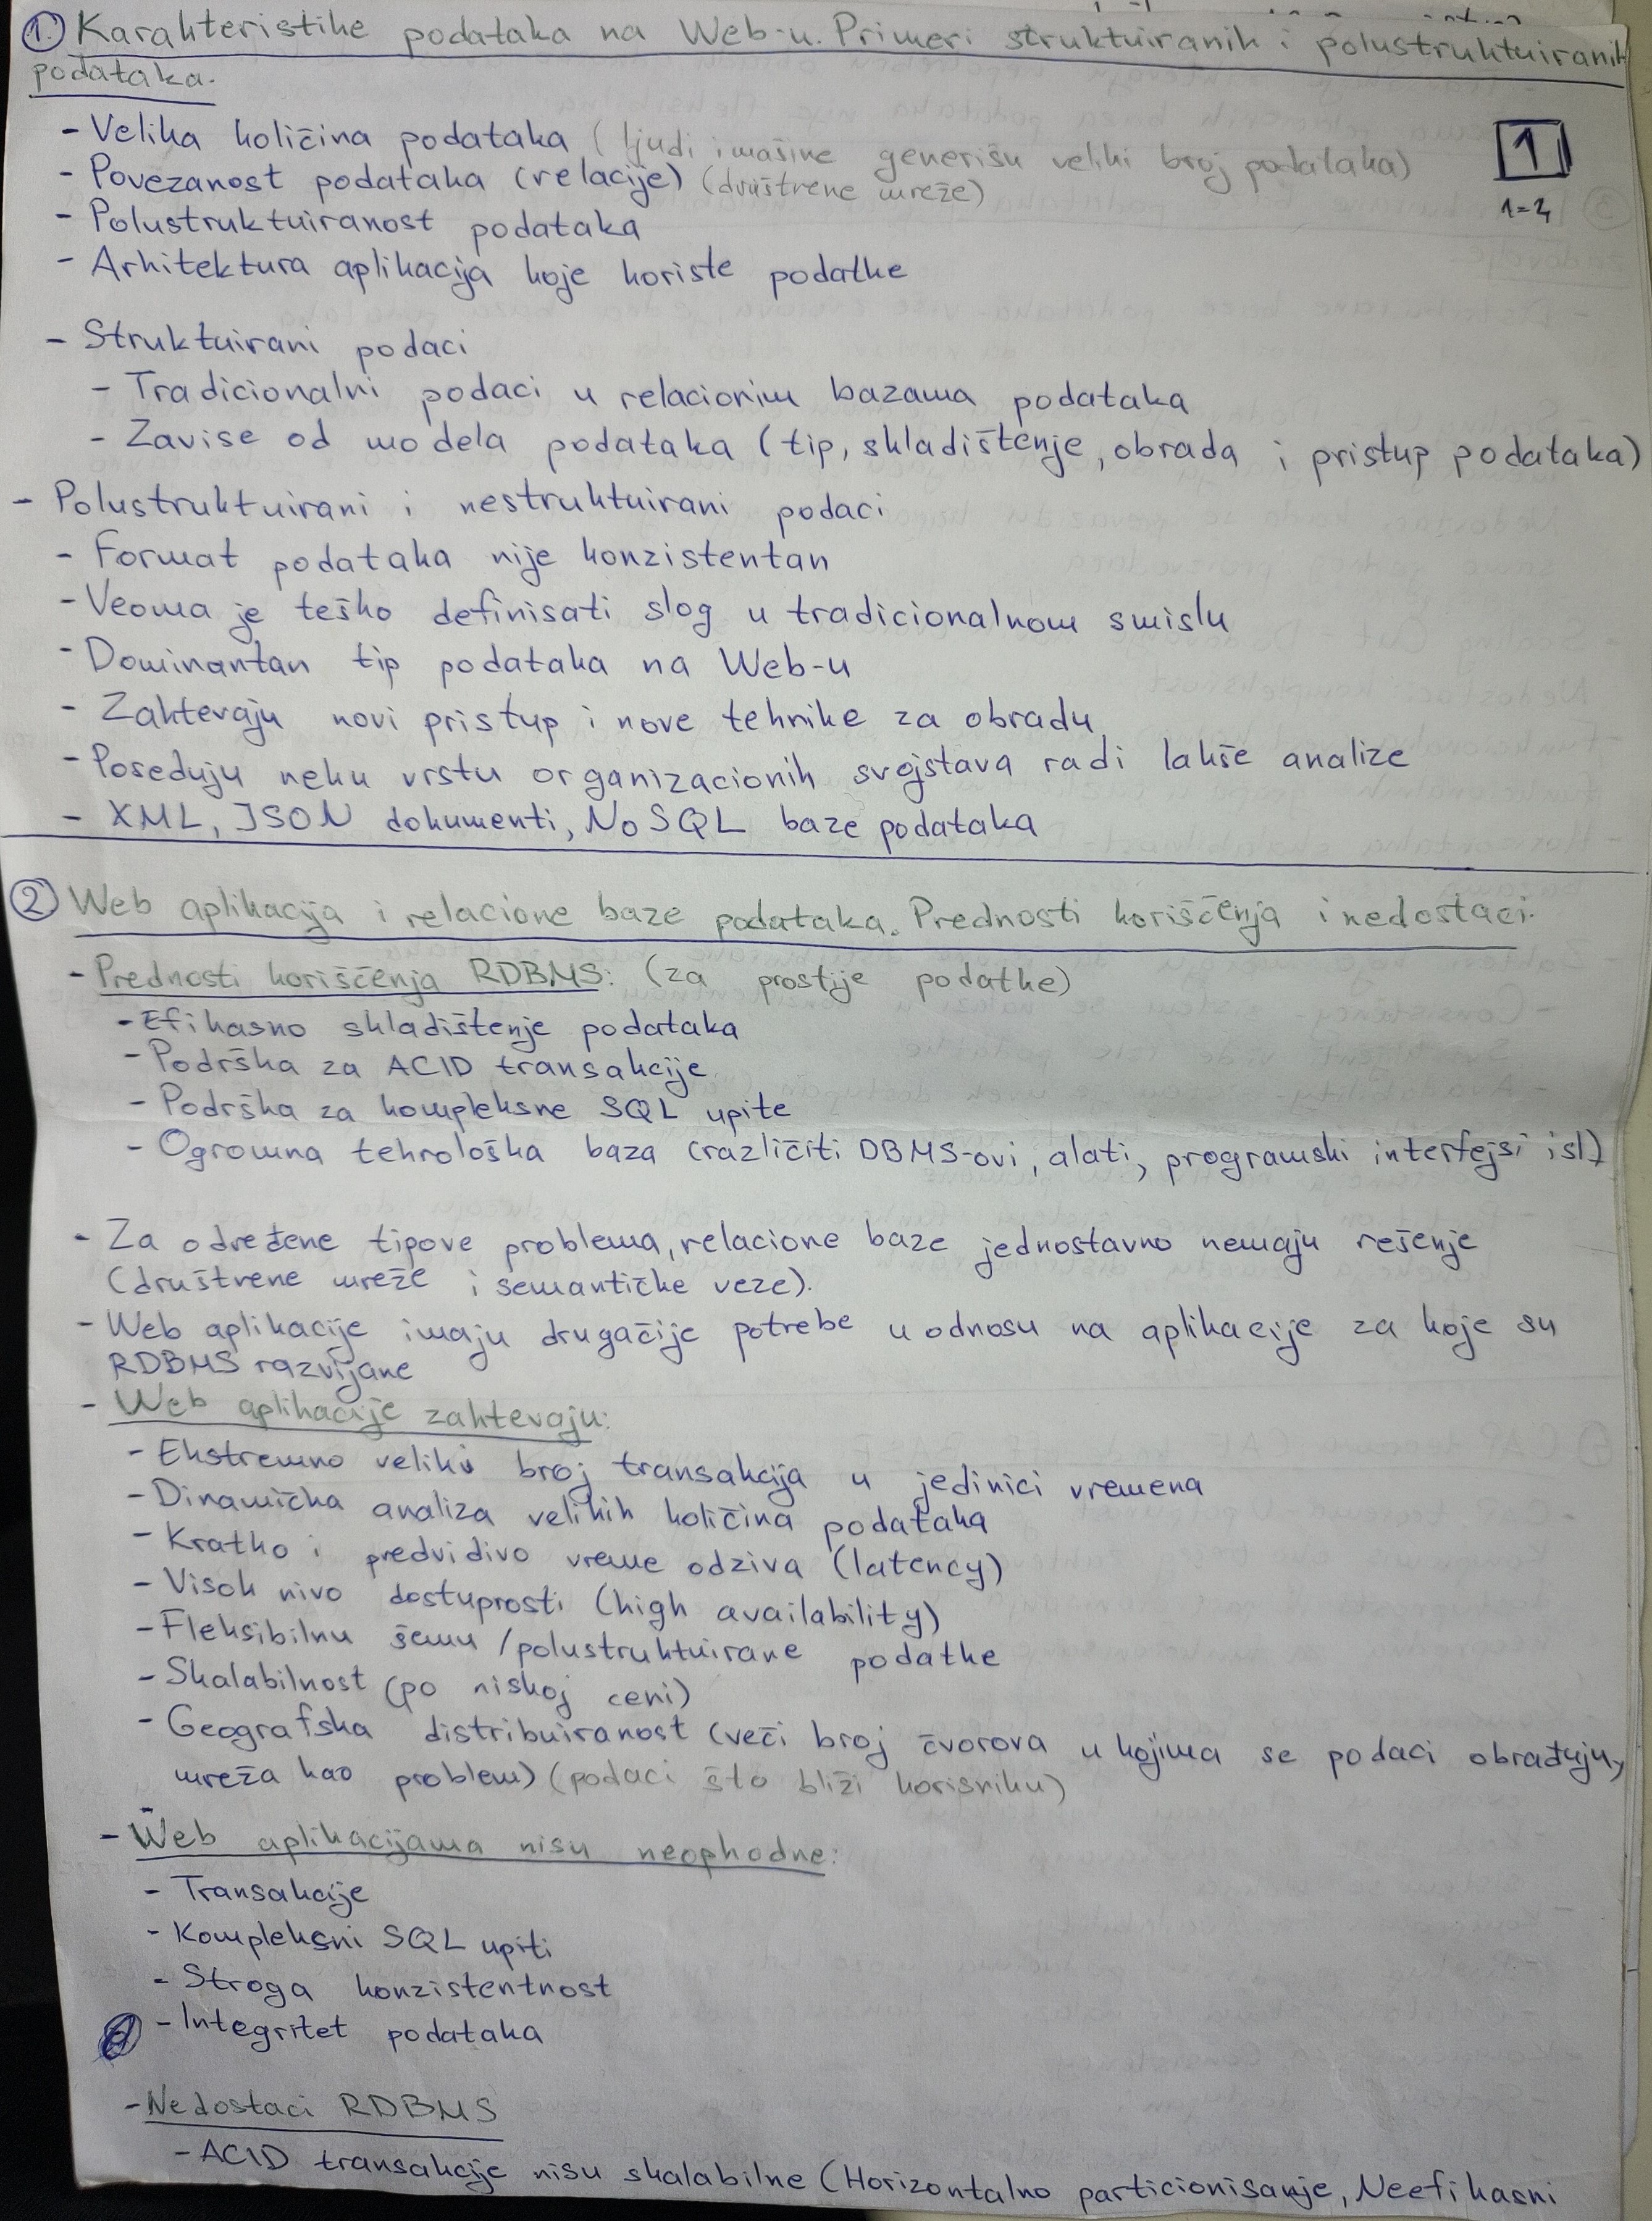 1. Karakteristike podataka na Web-u. Primeri struktuiranih i polustruktuiranih
podataka.
- Velika količina podataka (ljudi i mašine generišu veliki broj podataka)
1
- Povezanost podataka (relacije) (društvene mreže)
1-2
- Polustruktuiranost podataka
- Arhitektura aplikacija koje koriste podatke
- Struktuirani podaci
- Tradicionalni podaci u relacionim bazama podataka
- Zavise od modela podataka (tip, skladištenje, obrada i pristup podataka)
- Polustruktuirani i nestruktuirani podaci
- Format podataka nije konzistentan
- Veoma je teško definisati slog u tradicionalnom smislu
- Dominantan tip podataka na Web-u
- Zahtevaju novi pristup i nove tehnike za obradu
- Poseduju neku vrstu organizacionih svojstava radi lakše analize
- XML, JSON dokumenti, NoSQL baze podataka
2 Web aplikacija i relacione baze podataka. Prednosti korišćenja i nedostaci.
- Prednosti korišćenja RDBMS: (za prostije podatke)
- Efikasno skladištenje podataka
- Podrška za ACID transakcije
- Podrška za kompleksne SQL upite
- Ogromna tehnološka baza (različiti DBMS-ovi, alati, programski interfejsi isl)
- Za određene tipove problema, relacione baze jednostavno nemaju rešenje
(društvene mreže i semantičke veze).
- Web aplikacije imaju drugačije potrebe u odnosu na aplikacije za koje su
RDBMS razvijane
- Web aplikacije zahtevaju:
- Ekstremno veliki broj transakcija u jedinici vremena
- Dinamička analiza velikih količina podataka
- Kratko i predvidivo vreme odziva (latency)
- Visok nivo dostupnosti (high availability)
- Fleksibilnu šemu / polustruktuirane podatke
- Skalabilnost (po niskoj ceni)
- Geografska distribuiranost (veći broj čvorova u kojima se podaci obrađuju,
mreža kao problem) (podaci što bliži korisniku)
- Web aplikacijama nisu neophodne:
- Transakcije
- Kompleksni SQL upiti
- Stroga konzistentnost
- Integritet podataka
- Nedostaci RDBMS
- ACID transakcije nisu skalabilne (Horizontalno particionisanje, Neefikasni